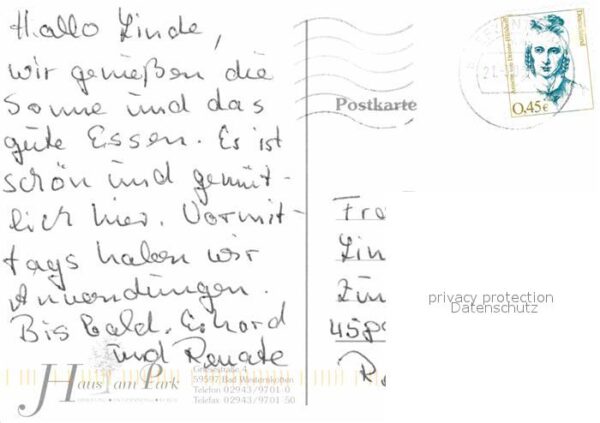 Hallo Linde,
wir genießen die
Sonne und das
gute Essen. Es ist
schön und gemüt-
lich hier. Vormit-
tags haben wir
Anwendungen.
Bis bald. Erhard
und Renate
Postkarte
Deutschland
0,45€
Fra
Lin
privacy protection
Datenschutz
Haus am Park
59597 Bad Westernkotten
Telefon 02943/9701-0
Telefax 02943/9701 50